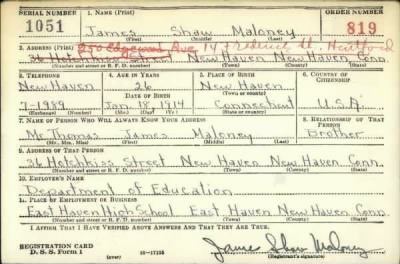 SERIAL NUMBER 1. NAME (Print) ORDER NUMBER
1051 James Shaw Maloney 819
(First) (Middle) (Last)
2. ADDRESS (Print) 250 Edgewood Ave 14 Frederick St. Hartford
36 Hotchkiss Street New Haven New Haven Conn.
(Number and street or R. F. D. number) (Town) (County) (State)
3. TELEPHONE 4. AGE IN YEARS 5. PLACE OF BIRTH 6. COUNTRY OF CITIZENSHIP
New Haven 26 New Haven
DATE OF BIRTH (Town or county)
7-1989 Jan. 18, 1914 Connecticut U.S.A.
(Exchange) (Number) (Mo.) (Day) (Yr.) (State or country)
7. NAME OF PERSON WHO WILL ALWAYS KNOW YOUR ADDRESS 8. RELATIONSHIP OF THAT PERSON
Mr. Thomas James Maloney Brother
(Mr., Mrs., Miss) (First) (Middle) (Last)
9. ADDRESS OF THAT PERSON
36 Hotchkiss Street New Haven New Haven Conn.
(Number and street or R. F. D. number) (Town) (County) (State)
10. EMPLOYER'S NAME
Department of Education
11. PLACE OF EMPLOYMENT OR BUSINESS
East Haven High School East Haven New Haven Conn.
(Number and street or R. F. D. number) (Town) (County) (State)
I AFFIRM THAT I HAVE VERIFIED ABOVE ANSWERS AND THAT THEY ARE TRUE.
REGISTRATION CARD James Shaw Maloney
D. S. S. Form 1 (over) 16-17105 (Registrant's signature)